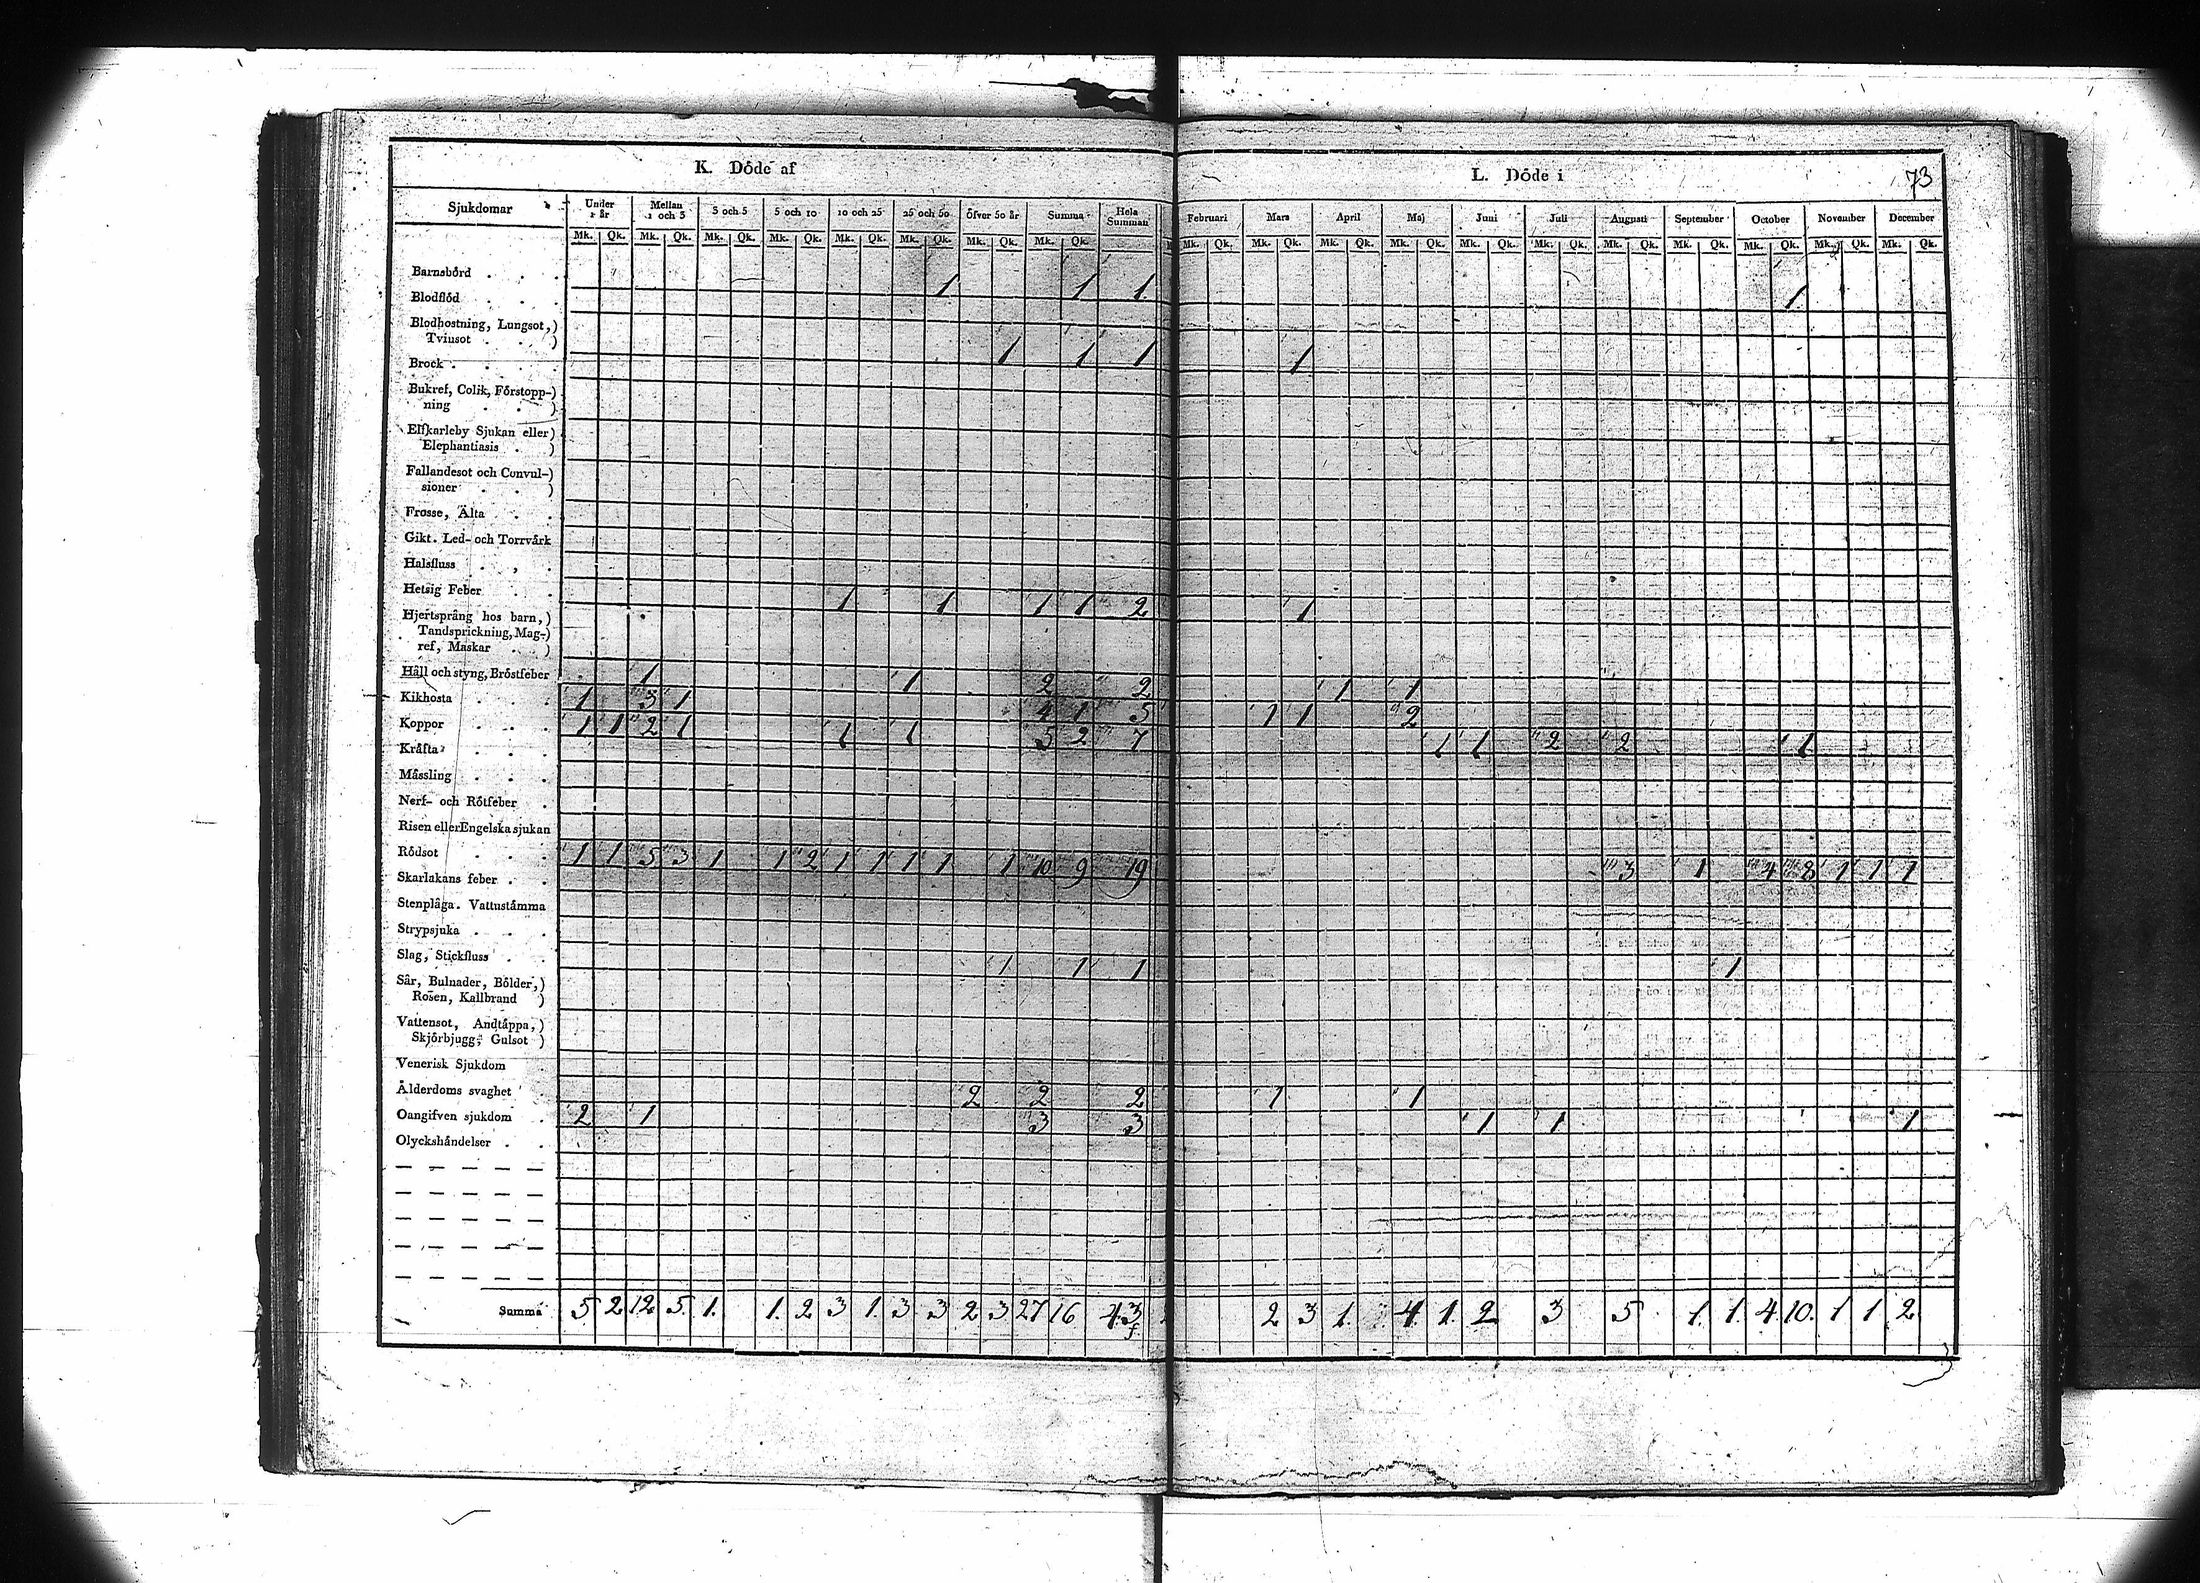 K. Döde af
L. Döde i 73
Sjukdomar Under 1 år Mellan 1 och 3 3 och 5 5 och 10 10 och 25 25 och 50 Öfver 50 år Summa Hela Summan Februari Mars April Maj Juni Juli Augusti September October November December
Mk. Qk. Mk. Qk. Mk. Qk. Mk. Qk. Mk. Qk. Mk. Qk. Mk. Qk. Mk. Qk. Mk. Qk. Mk. Qk. Mk. Qk. Mk. Qk. Mk. Qk. Mk. Qk. Mk. Qk. Mk. Qk. Mk. Qk. Mk. Qk. Mk. Qk.
Barnsbörd . . . 1 1 1 1
Blodflöd . . .
Blodhostning, Lungsot,)
Tvinsot . . ) 1 1 1 1
Brock . . . .
Bukref, Colik, Förstopp-)
ning . . )
Elfkarleby Sjukan eller)
Elephantiasis . )
Fallandesot och Convul-)
sioner . . )
Frosse, Älta . .
Gikt. Led- och Torrvärk
Halsfluss . , .
Hetsig Feber . . 1 1 1 1 2 1
Hjertsprång hos barn,)
Tandsprickning, Mag-)
ref, Maskar . . )
Håll och styng, Bröstfeber 1 1 2 2 1 1
Kikhosta . . . 1 3 1 4 1 5 1 1 2
Koppor . . . 1 1 2 1 1 1 5 2 7 1 1 2 2 1
Kräfta . . .
Mässling . . .
Nerf- och Rötfeber .
Risen eller Engelska sjukan
Rödsot . . . 1 1 5 3 1 1 2 1 1 1 1 1 10 9 19 3 1 4 8 1 1 1
Skarlakans feber . .
Stenplåga. Vattustämma
Strypsjuka . . .
Slag, Stickfluss . . 1 1 1 1
Sår, Bulnader, Bölder,)
Rosen, Kallbrand )
Vattensot, Andtäppa,)
Skjörbjugg, Gulsot )
Venerisk Sjukdom
Ålderdoms svaghet 2 2 2 1 1
Oangifven sjukdom . 2 1 3 3 1 1 1
Olyckshändelser . .
Summa 5 2 12 5. 1. 1. 2 3 1. 3 3 2 3 27 16 43 2 3 1. 4. 1. 2 3 5 1. 1. 4. 10. 1 1 2